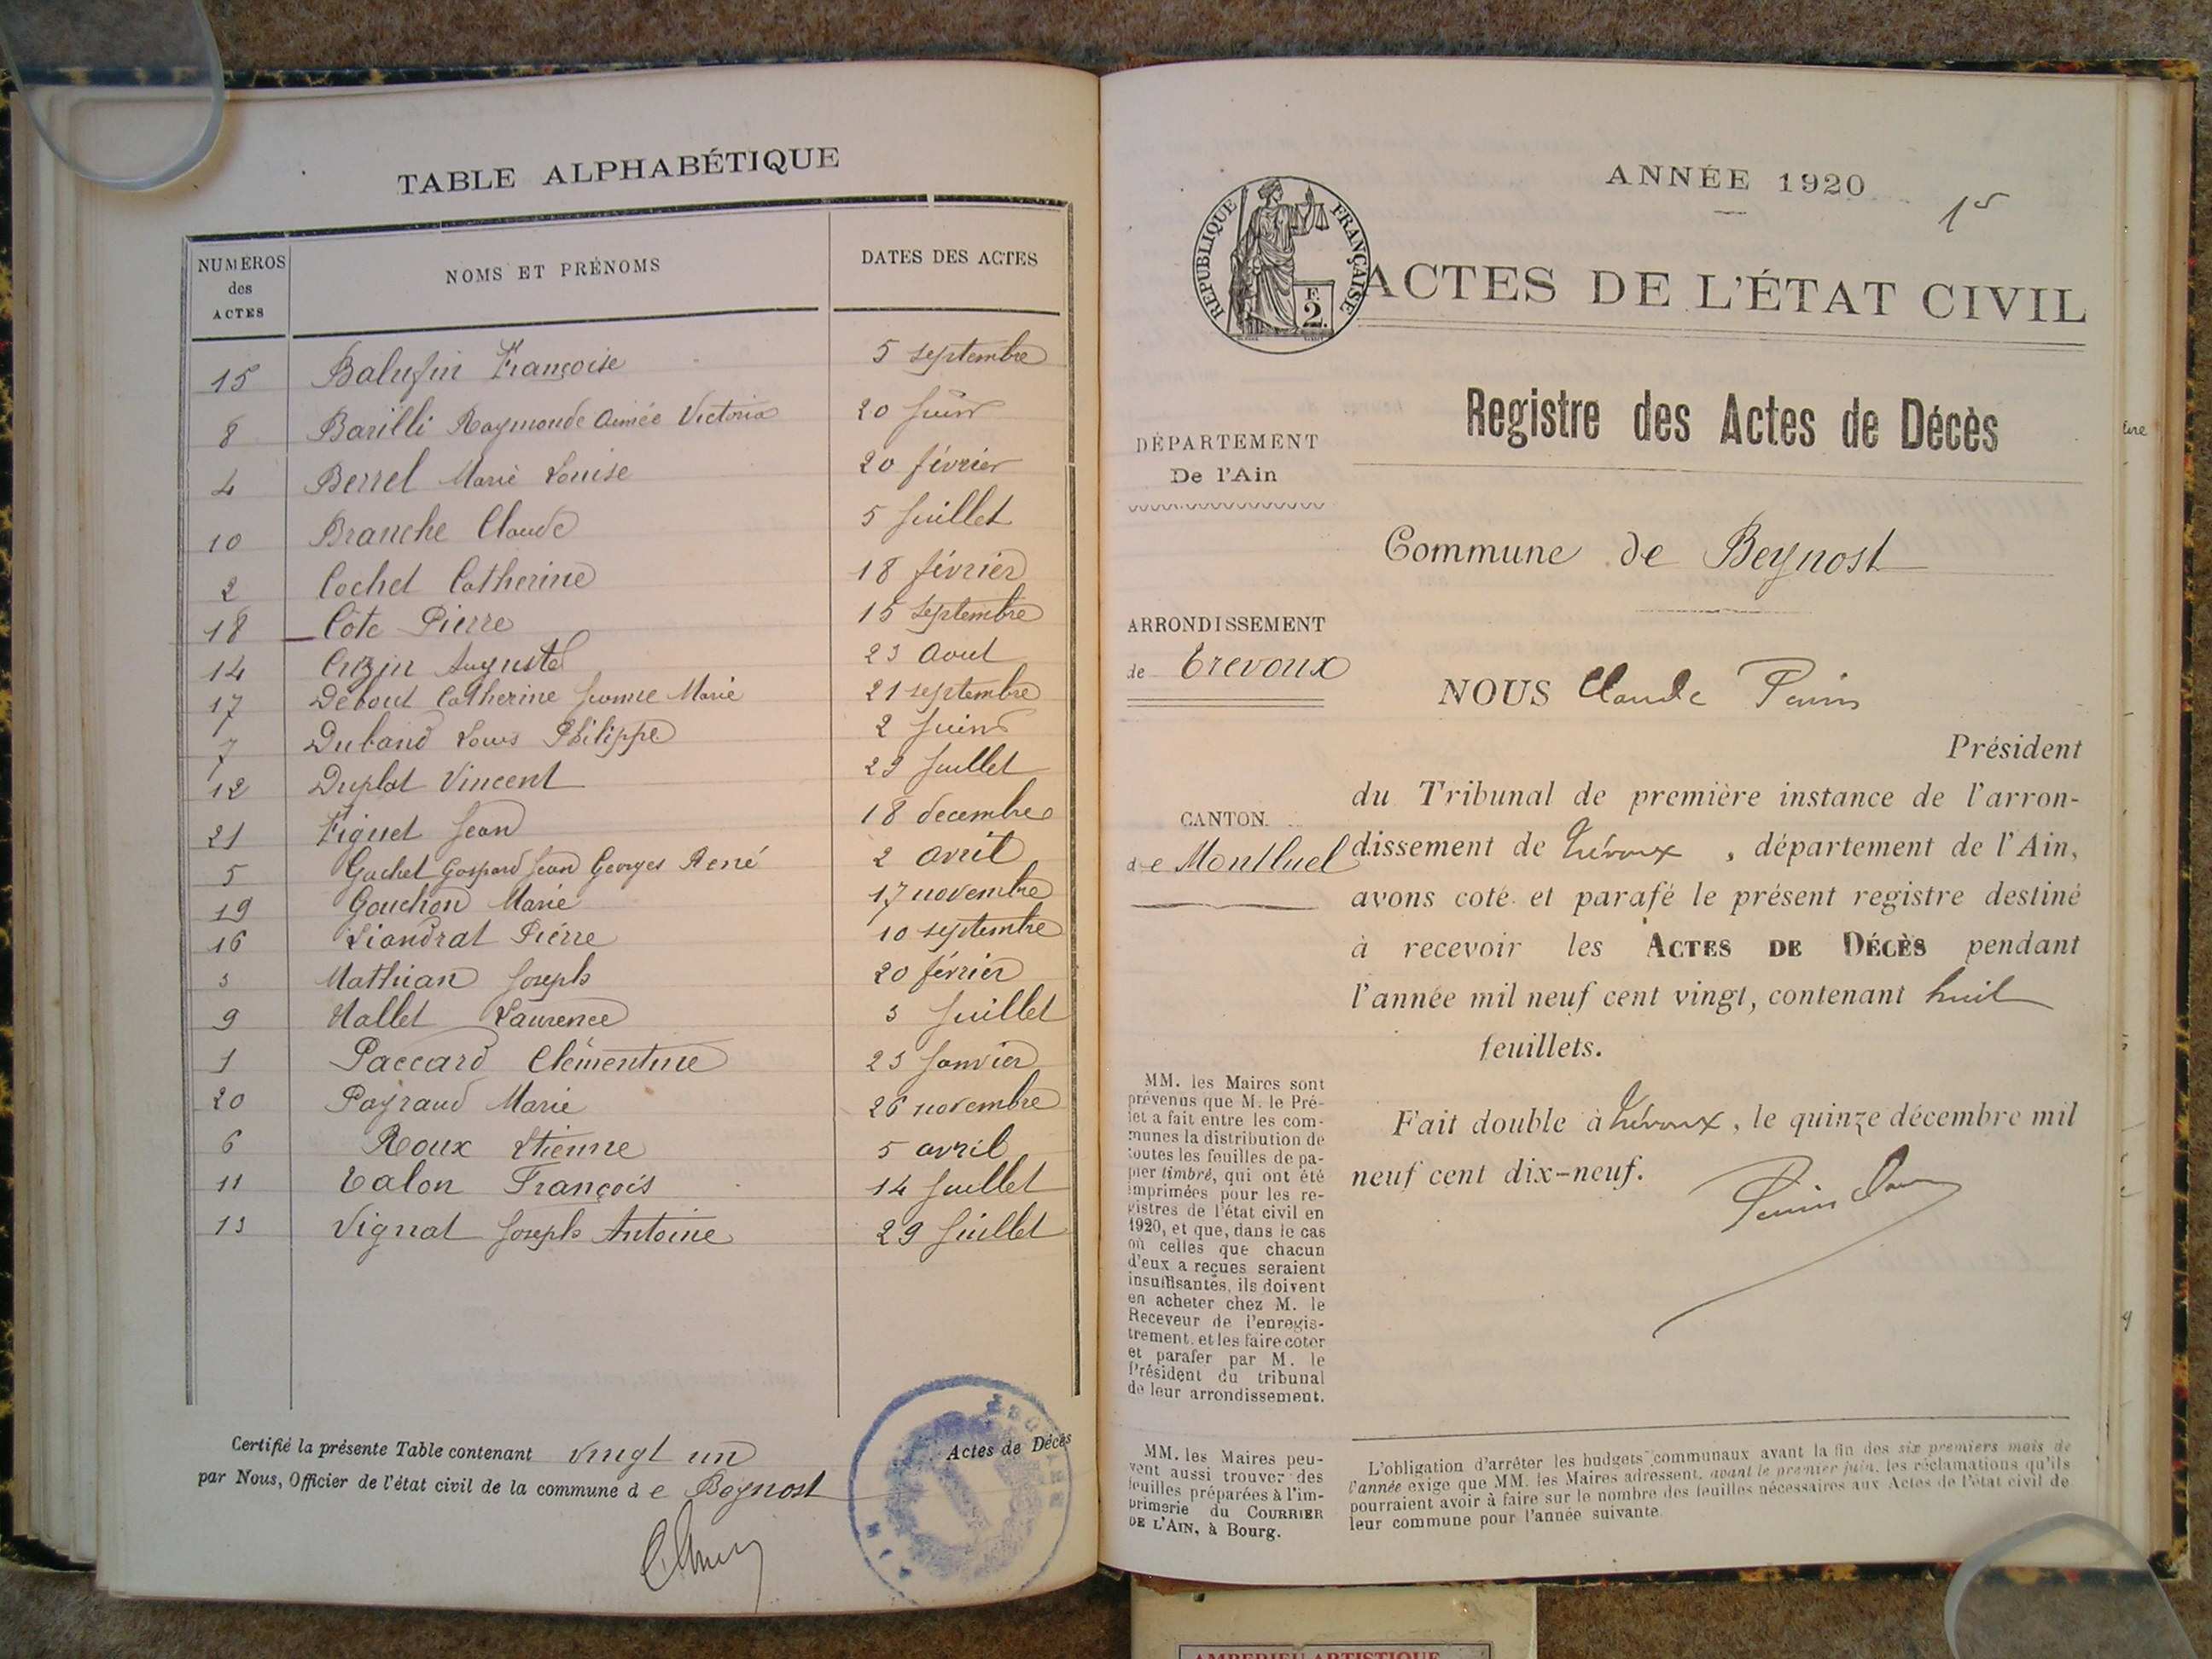 TABLE ALPHABÉTIQUE
NUMÉROS des ACTES NOMS ET PRÉNOMS DATES DES ACTES
15 Balufin Françoise 5 septembre
8 Barilli Raymonde Aimée Victoria 20 Juin
4 Berrel Marie Louise 20 février
10 Branche Claude 5 Juillet
2 Cochet Catherine 18 février
18 Côte Pierre 15 septembre
14 Cuzin Auguste 23 Aout
17 Debout Catherine Jeanne Marie 21 septembre
7 Duband Louis Philippe 2 Juin
12 Duplat Vincent 23 Juillet
21 Figuet Jean 18 decembre
5 Gachet Gaspard Jean Georges René 2 avril
19 Gouchon Marie 17 novembre
16 Liandrat Pierre 10 septembre
3 Mathian Joseph 20 février
9 Mallet Laurence 3 Juillet
1 Paccard Clémentine 23 Janvier
20 Payraud Marie 26 novembre
6 Roux Etienne 5 avril
11 Talon François 14 Juillet
13 Vignat Joseph Antoine 29 Juillet
Certifié la présente Table contenant vingt un Actes de Décès
par Nous, Officier de l'état civil de la commune de Beynost
ANNÉE 1920
RÉPUBLIQUE FRANÇAISE
F.
2.
ACTES DE L'ÉTAT CIVIL
Registre des Actes de Décès
DÉPARTEMENT
De l'Ain
Commune de Beynost
ARRONDISSEMENT
de Trevoux
NOUS Claude Perrin
Président
du Tribunal de première instance de l'arron-
CANTON
de Montluel
dissement de Trévoux, département de l'Ain,
avons coté et parafé le présent registre destiné
à recevoir les ACTES DE DÉCÈS pendant
l'année mil neuf cent vingt, contenant huit
feuillets.
Fait double à Trévoux, le quinze décembre mil
neuf cent dix-neuf.
MM. les Maires sont
prévenus que M. le Pré-
fet a fait entre les com-
munes la distribution de
toutes les feuilles de pa-
pier timbré, qui ont été
imprimées pour les re-
gistres de l'état civil en
1920, et que, dans le cas
où celles que chacun
d'eux a reçues seraient
insuffisantes, ils doivent
en acheter chez M. le
Receveur de l'enregis-
trement, et les faire coter
et parafer par M. le
Président du tribunal
de leur arrondissement.
MM. les Maires peu-
vent aussi trouver des
feuilles préparées à l'im-
primerie du COURRIER
DE L'AIN, à Bourg.
L'obligation d'arrêter les budgets communaux avant la fin des six premiers mois de
l'année exige que MM. les Maires adressent, avant le premier juin, les réclamations qu'ils
pourraient avoir à faire sur le nombre des feuilles nécessaires aux Actes de l'état civil de
leur commune pour l'année suivante.
AMBERIEU ARTISTIQUE